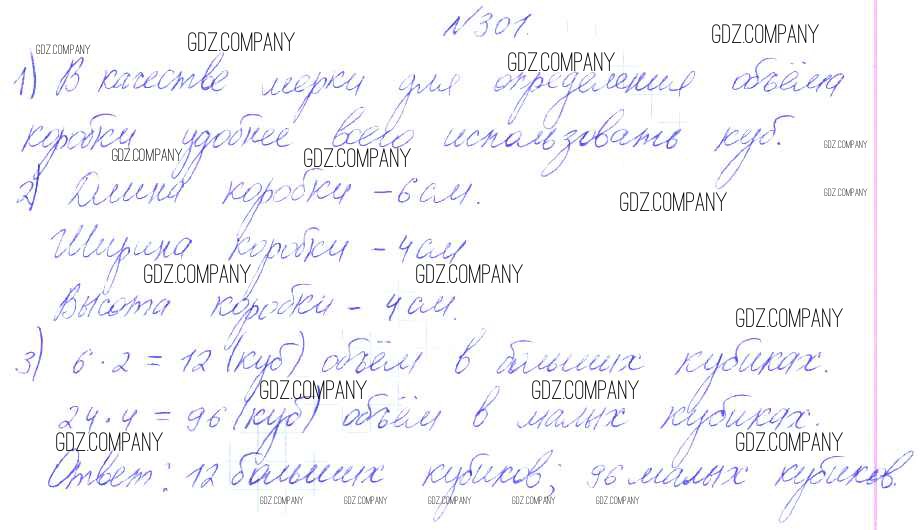 №301.
GDZ.COMPANY GDZ.COMPANY GDZ.COMPANY
GDZ.COMPANY
1) В качестве мерки для определения объёма
коробки удобнее всего использовать куб.
GDZ.COMPANY GDZ.COMPANY GDZ.COMPANY
2) Длина коробки – 6 см.
GDZ.COMPANY GDZ.COMPANY
Ширина коробки – 4 см
GDZ.COMPANY GDZ.COMPANY
Высота коробки – 4 см.
GDZ.COMPANY
3) 6 · 2 = 12 (куб) объём в больших кубиках.
GDZ.COMPANY GDZ.COMPANY
24 · 4 = 96 (куб) объём в малых кубиках.
GDZ.COMPANY GDZ.COMPANY
Ответ: 12 больших кубиков; 96 малых кубиков.
GDZ.COMPANY GDZ.COMPANY GDZ.COMPANY GDZ.COMPANY GDZ.COMPANY